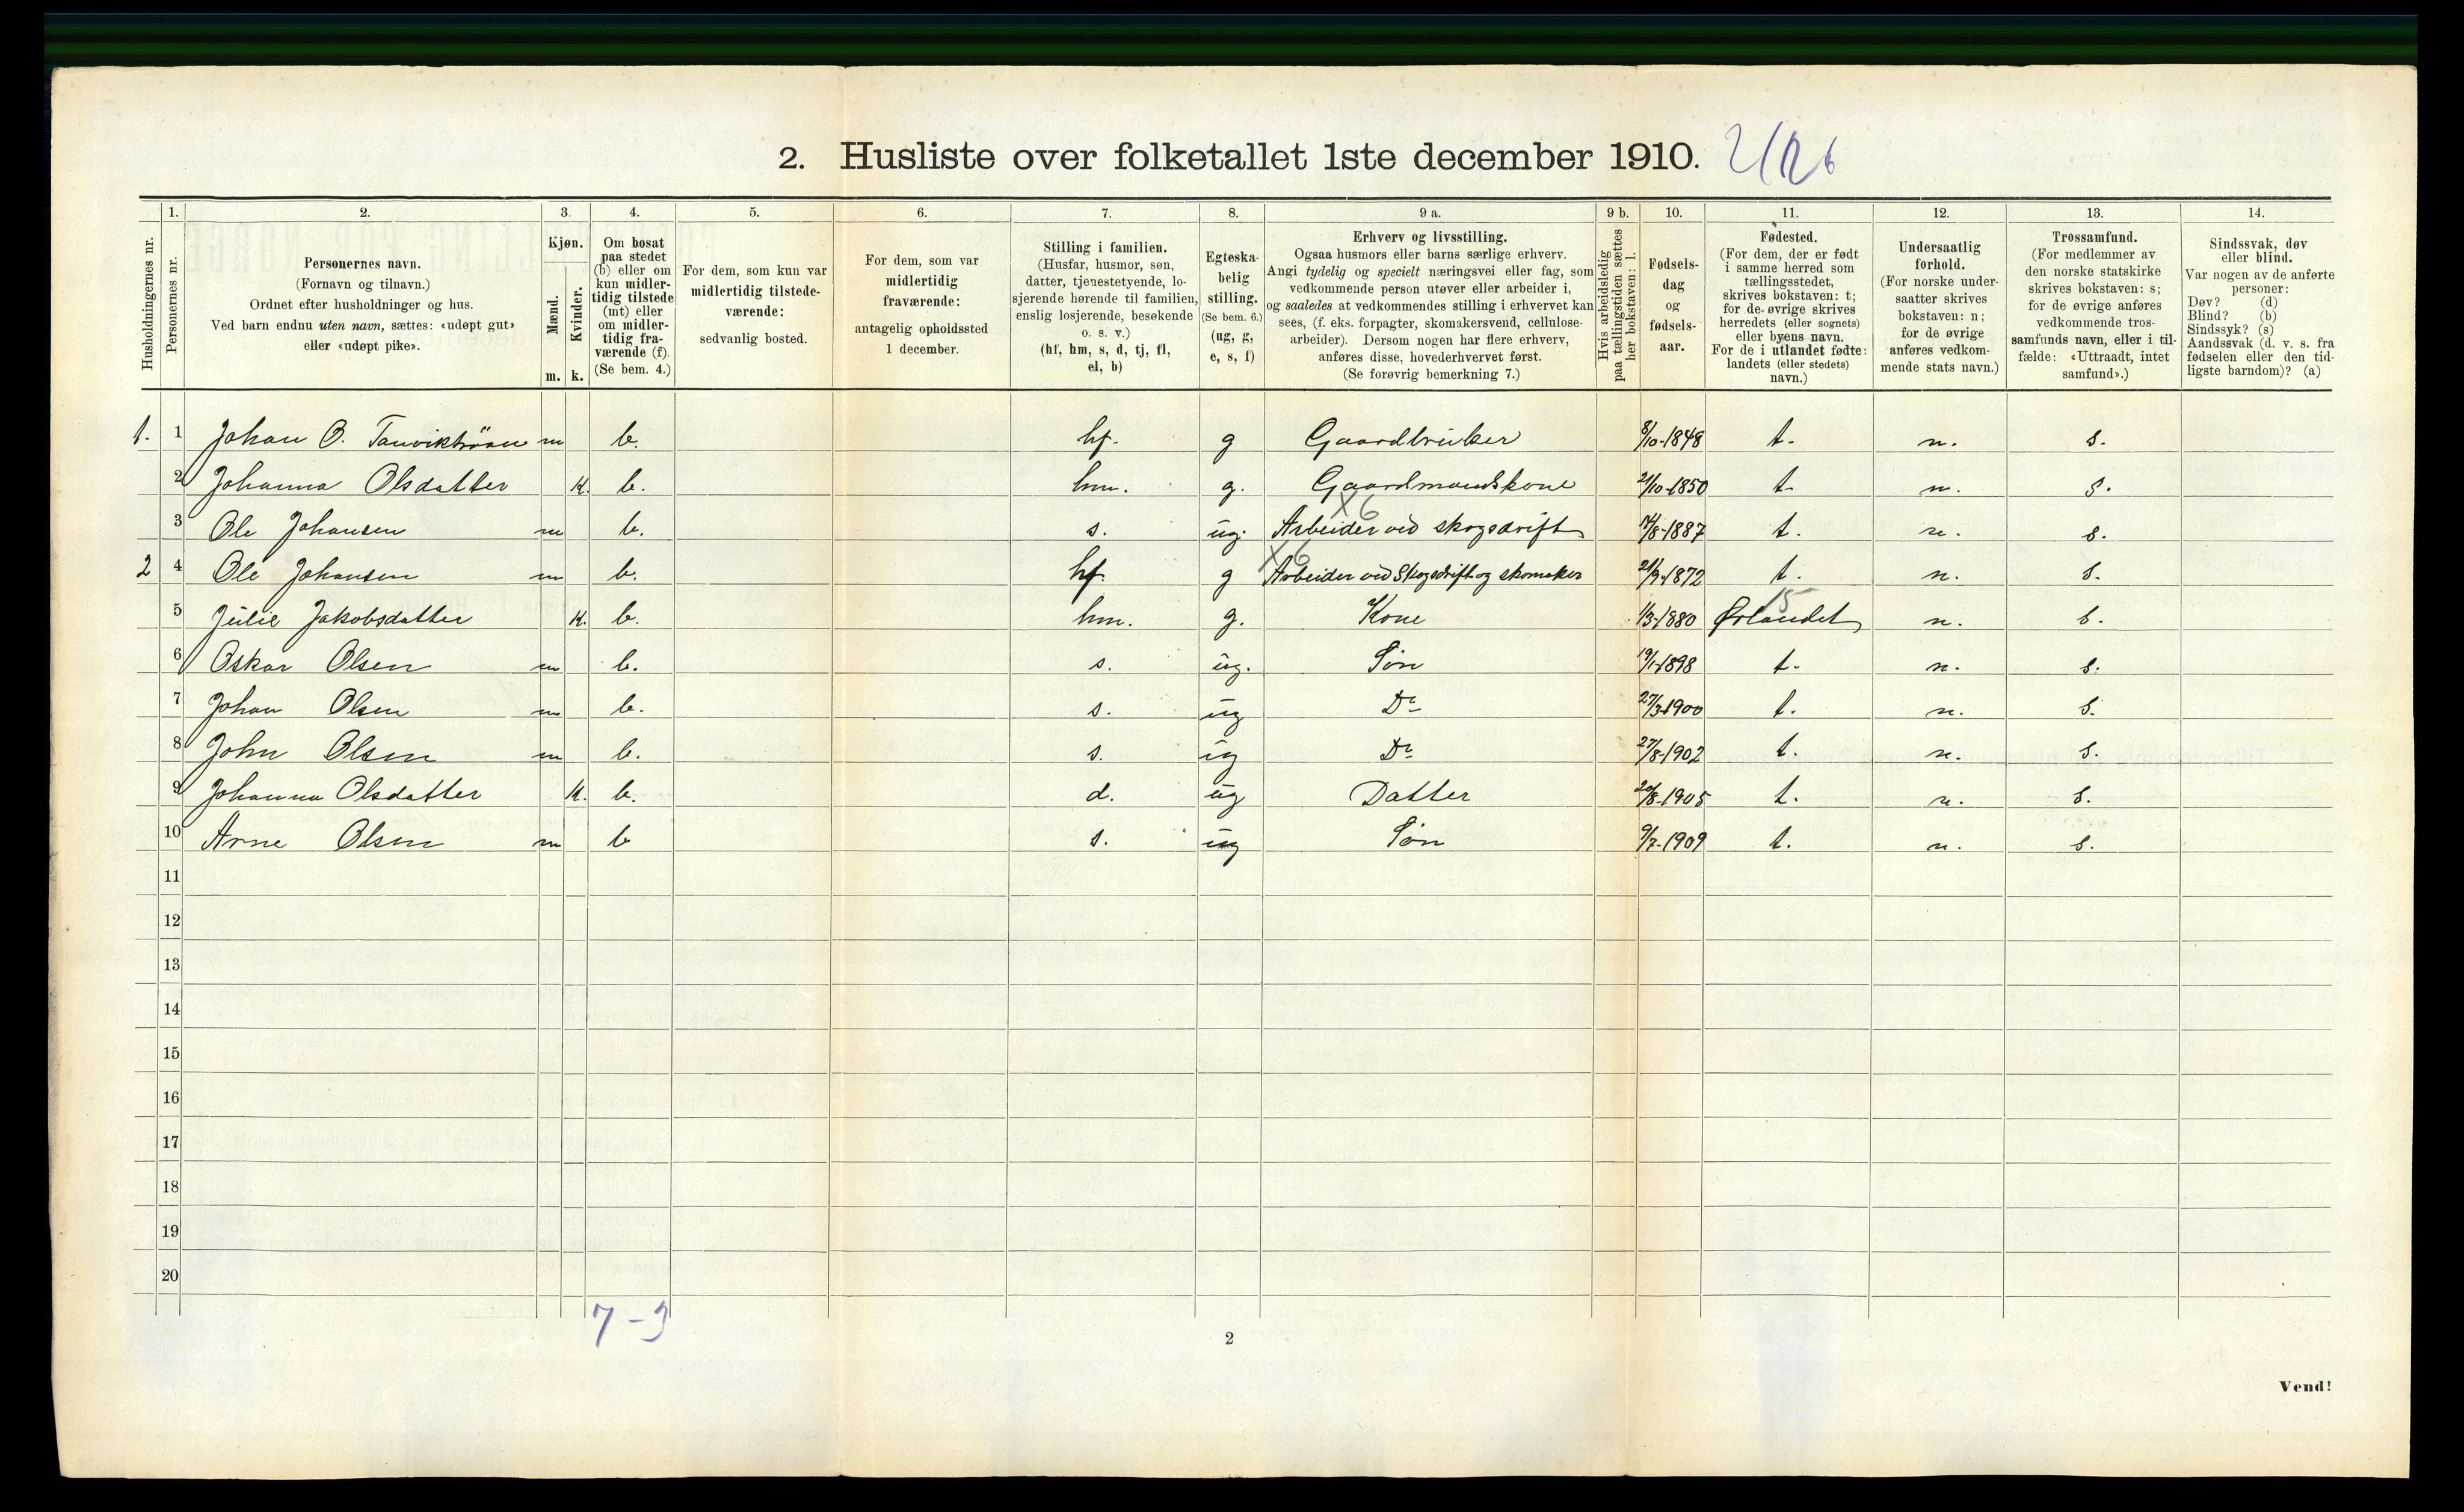 2. Husliste over folketallet 1ste december 1910.
1. 2. 3. 4. 5. 6. 7. 8. 9 a. 9 b. 10. 11. 12. 13. 14.
Husholdningernes nr.
Personernes nr.
Personernes navn.
(Fornavn og tilnavn.)
Ordnet efter husholdninger og hus.
Ved barn endnu uten navn, sættes: «udøpt gut»
eller «udøpt pike».
Kjøn.
Mænd.
Kvinder.
m. k.
Om bosat
paa stedet
(b) eller om
kun midler-
tidig tilstede
(mt) eller
om midler-
tidig fra-
værende (f).
(Se bem. 4.)
For dem, som kun var
midlertidig tilstede-
værende:
sedvanlig bosted.
For dem, som var
midlertidig
fraværende:
antagelig opholdssted
1 december.
Stilling i familien.
(Husfar, husmor, søn,
datter, tjenestetyende, lo-
sjerende hørende til familien,
enslig losjerende, besøkende
o. s. v.)
(hf, hm, s, d, tj, fl,
el, b)
Egteska-
belig
stilling.
(Se bem. 6.)
(ug, g,
e, s, f)
Erhverv og livsstilling.
Ogsaa husmors eller barns særlige erhverv.
Angi tydelig og specielt næringsvei eller fag, som
vedkommende person utøver eller arbeider i,
og saaledes at vedkommendes stilling i erhvervet kan
sees, (f. eks. forpagter, skomakersvend, cellulose-
arbeider). Dersom nogen har flere erhverv,
anføres disse, hovederhvervet først.
(Se forøvrig bemerkning 7.)
Hvis arbeidsledig
paa tællingstiden sættes
her bokstaven: l.
Fødsels-
dag
og
fødsels-
aar.
Fødested.
(For dem, der er født
i samme herred som
tællingsstedet,
skrives bokstaven: t;
for de øvrige skrives
herredets (eller sognets)
eller byens navn.
For de i utlandet fødte:
landets (eller stedets)
navn.)
Undersaatlig
forhold.
(For norske under-
saatter skrives
bokstaven: n;
for de øvrige
anføres vedkom-
mende stats navn.)
Trossamfund.
(For medlemmer av
den norske statskirke
skrives bokstaven: s;
for de øvrige anføres
vedkommende tros-
samfunds navn, eller i til-
fælde: «Uttraadt, intet
samfund».)
Sindssvak, døv
eller blind.
Var nogen av de anførte
personer:
Døv? (d)
Blind? (b)
Sindssyk? (s)
Aandssvak (d. v. s. fra
fødselen eller den tid-
ligste barndom)? (a)
1. 1 Johan O. m b. hf. g Gaardbruker 8/10-1848 t. n. s.
2 Johanna Olsdatter K. b. hm. g. Gaardmandskone 21/10-1850 t. n. s.
X6
3 Ole Johansen m b. s. ug. Arbeider ved skogsdrift 14/8-1887 t. n. s.
X6
2 4 Ole Johansen m b. hf. g Arbeider ved Skogsdrift og skomaker 21/9-1872 t. n. s.
15
5 Julie Jakobsdatter K. b. hm. g. Kone 1/3-1880 Ørlandet n. s.
6 Oskar Olsen m b. s. ug. Søn 19/1-1898 t. n. s.
7 Johan Olsen m b. s. ug Do 27/3-1900 t. n. s.
8 John Olsen m b. s. ug Do 27/8-1902 t. n. s.
9 Johanna Olsdatter K. b. d. ug Datter 20/8-1905 t. n. s.
10 Arne Olsen m b s. ug Søn 9/7-1909 t. n. s.
11
12
13
14
15
16
17
18
19
20
7-3
2
Vend!